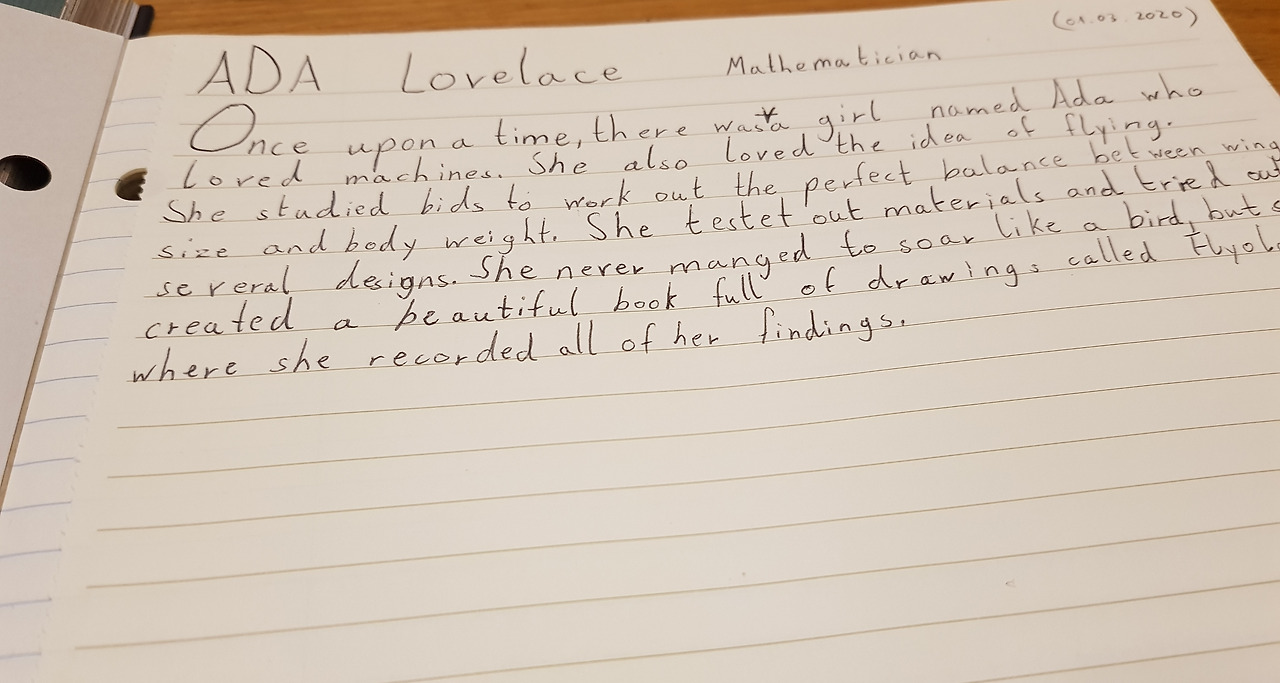 (01.03.2020)
ADA Lovelace Mathematician
Once upon a time, there was a girl named Ada who
loved machines. She also loved the idea of flying.
She studied bids to work out the perfect balance between wing
size and body weight. She testet out materials and tried out
several designs. She never manged to soar like a bird, but
created a beautiful book full of drawings called
where she recorded all of her findings.